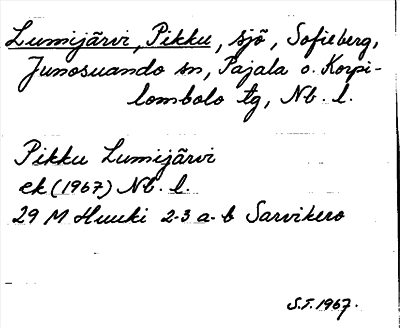 Lumijärvi, Pikku, sjö, Sofieberg,
Junosuando sn, Pajala o. Korpi-
lombolo tg, Nb. l.
Pikku Lumijärvi
ek (1967) Nb. l.
29 M Huuki 2-3 a-b Sarvikero
S.F. 1967.